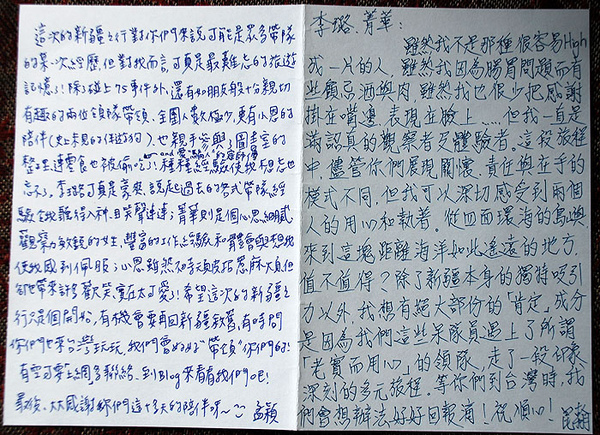 這次的新疆之行對你們來說可能是眾多帶隊
的某一次經歷,但對我而言可真是最難忘的旅遊
記憶了!除了碰上75事件外,還有和朋友般十分親切
有趣的兩位領隊帶領、全團人數極少、更有小恩的
陪伴(史上未見的伴遊狗)、也親手參與了圖書室的
整理,連零食也被偷吃了
忘不了。李璐可真是寶爽,說起過去的各式帶隊經
驗令我聽得入神且笑聲連連;菁華則是個心思細膩
觀察力敏銳的女生,豐富的工作經驗和體會與想法
使我感到佩服;小恩雖然有時頑皮搭麻煩但
卻也帶來許多歡笑,實在太可愛了!希望這次的新疆之
行只是個開始,有機會要再回新疆敘舊,有時間
你們也來台灣玩玩,我們會好好“帶領”你們的!
有空可要上網多聯絡、到Blog來看看我們吧!
最後,大大感謝你們這十多天的陪伴呀~ 孟穎
李璐、菁華:
雖然我不是那種很容易High
成一片的人,雖然我因為腸胃問題而有
些顧忌酒與肉,雖然我也很少把感謝
掛在嘴邊、表現在臉上……但我一直是
滿認真的觀察者及體驗者。這段旅程
中,儘管你們展現關懷、責任與在乎的
模式不同,但我可以深切感受到兩個
人的用心和執著。從四面環海的島嶼
來到這塊距離海洋如此遙遠的地方,
值不值得?除了新疆本身的獨特吸引
力以外,我想有絕大部份的「肯定」成分
是因為我們這些呆隊員遇上了所謂
「老實而用心」的領隊,走了一段印象
深刻的多元旅程。等你們到台灣時,我
們會想辦法好好回報滴!祝順心!